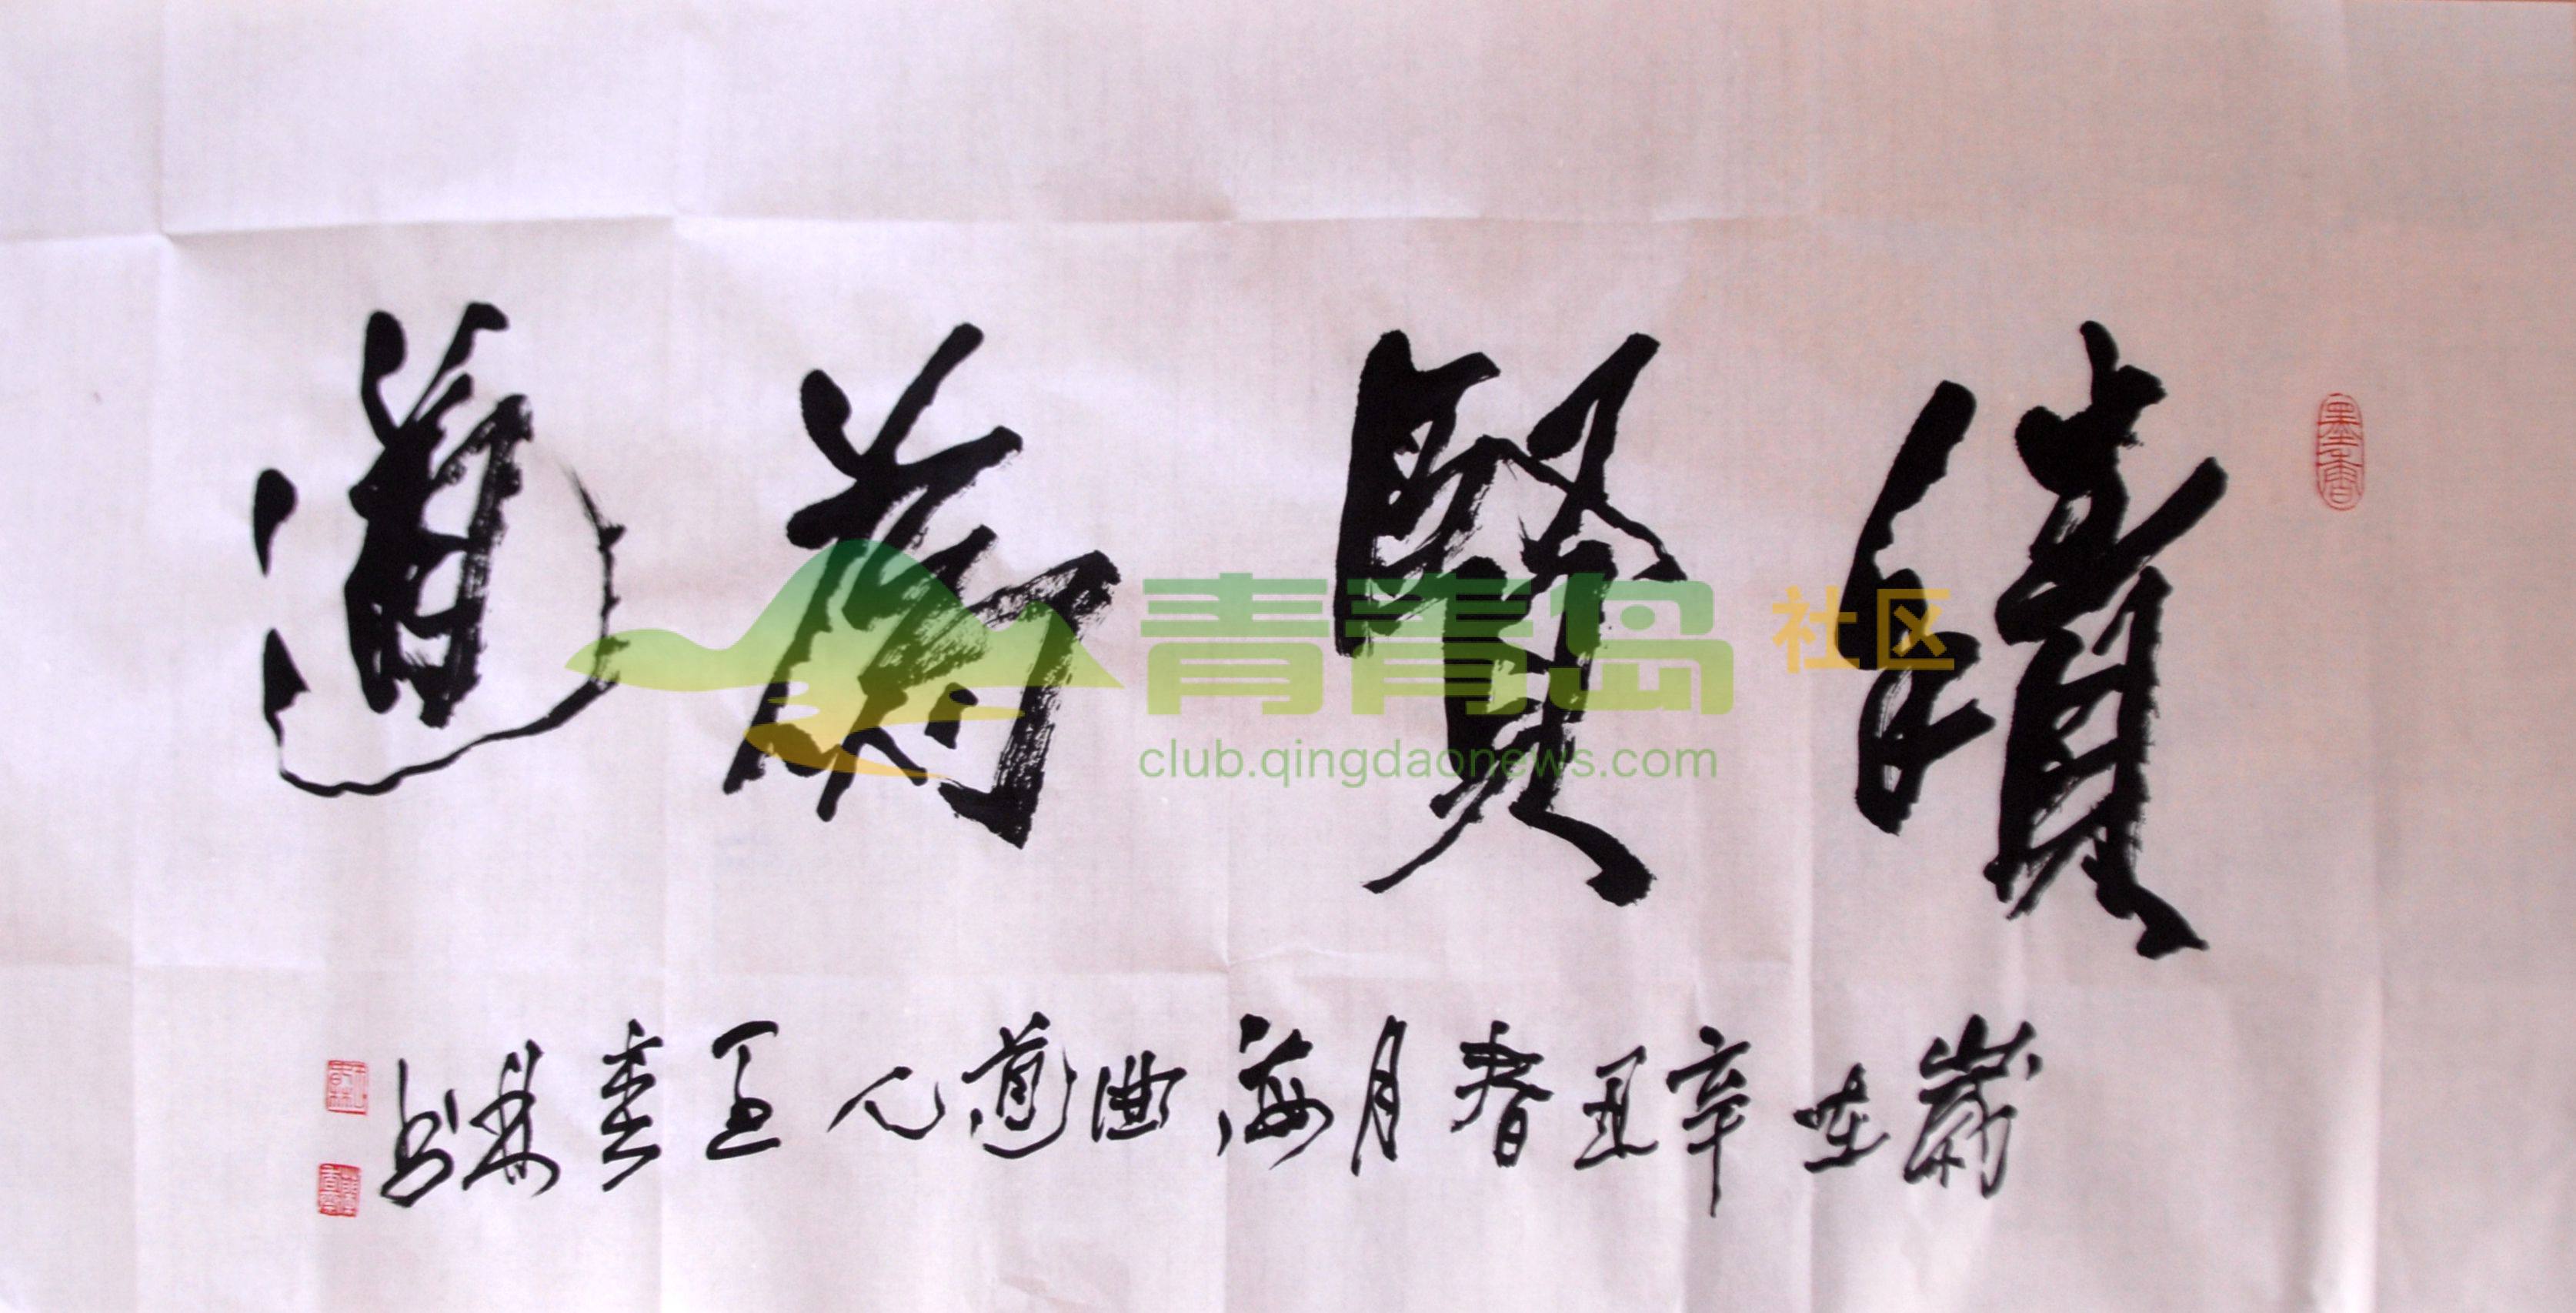 績賢為道
歲在辛丑春月海曲道人王
墨香
青青岛 社区
club.qingdaonews.com